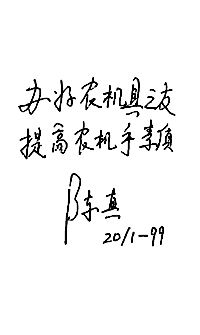 办好农机具之友
提高农机手素质
陈真
20/1-99